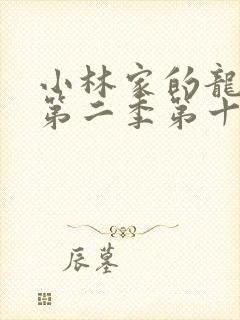 小林家的龍
第二季第十
辰墓